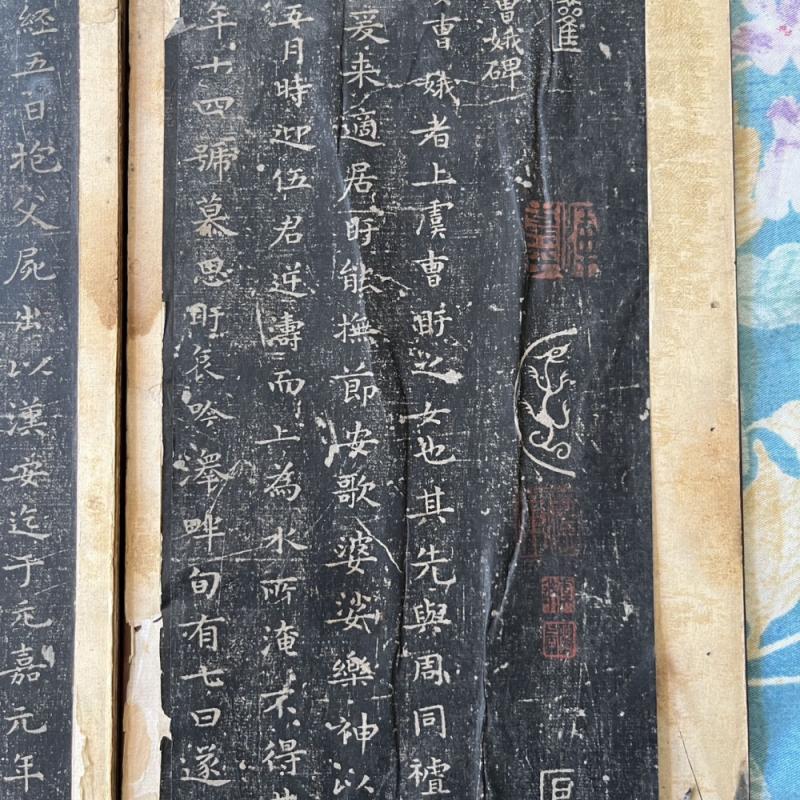 曹娥碑
曹娥者上虞曹盱之女也其先與周同禮
爰来適居盱能撫節安歌婆娑樂神以
五月時迎伍君逆濤而上為水所淹不得
年十四號慕思盱哀吟澤畔旬有七日遂
經五日抱父屍出以漢安迄于元嘉元年